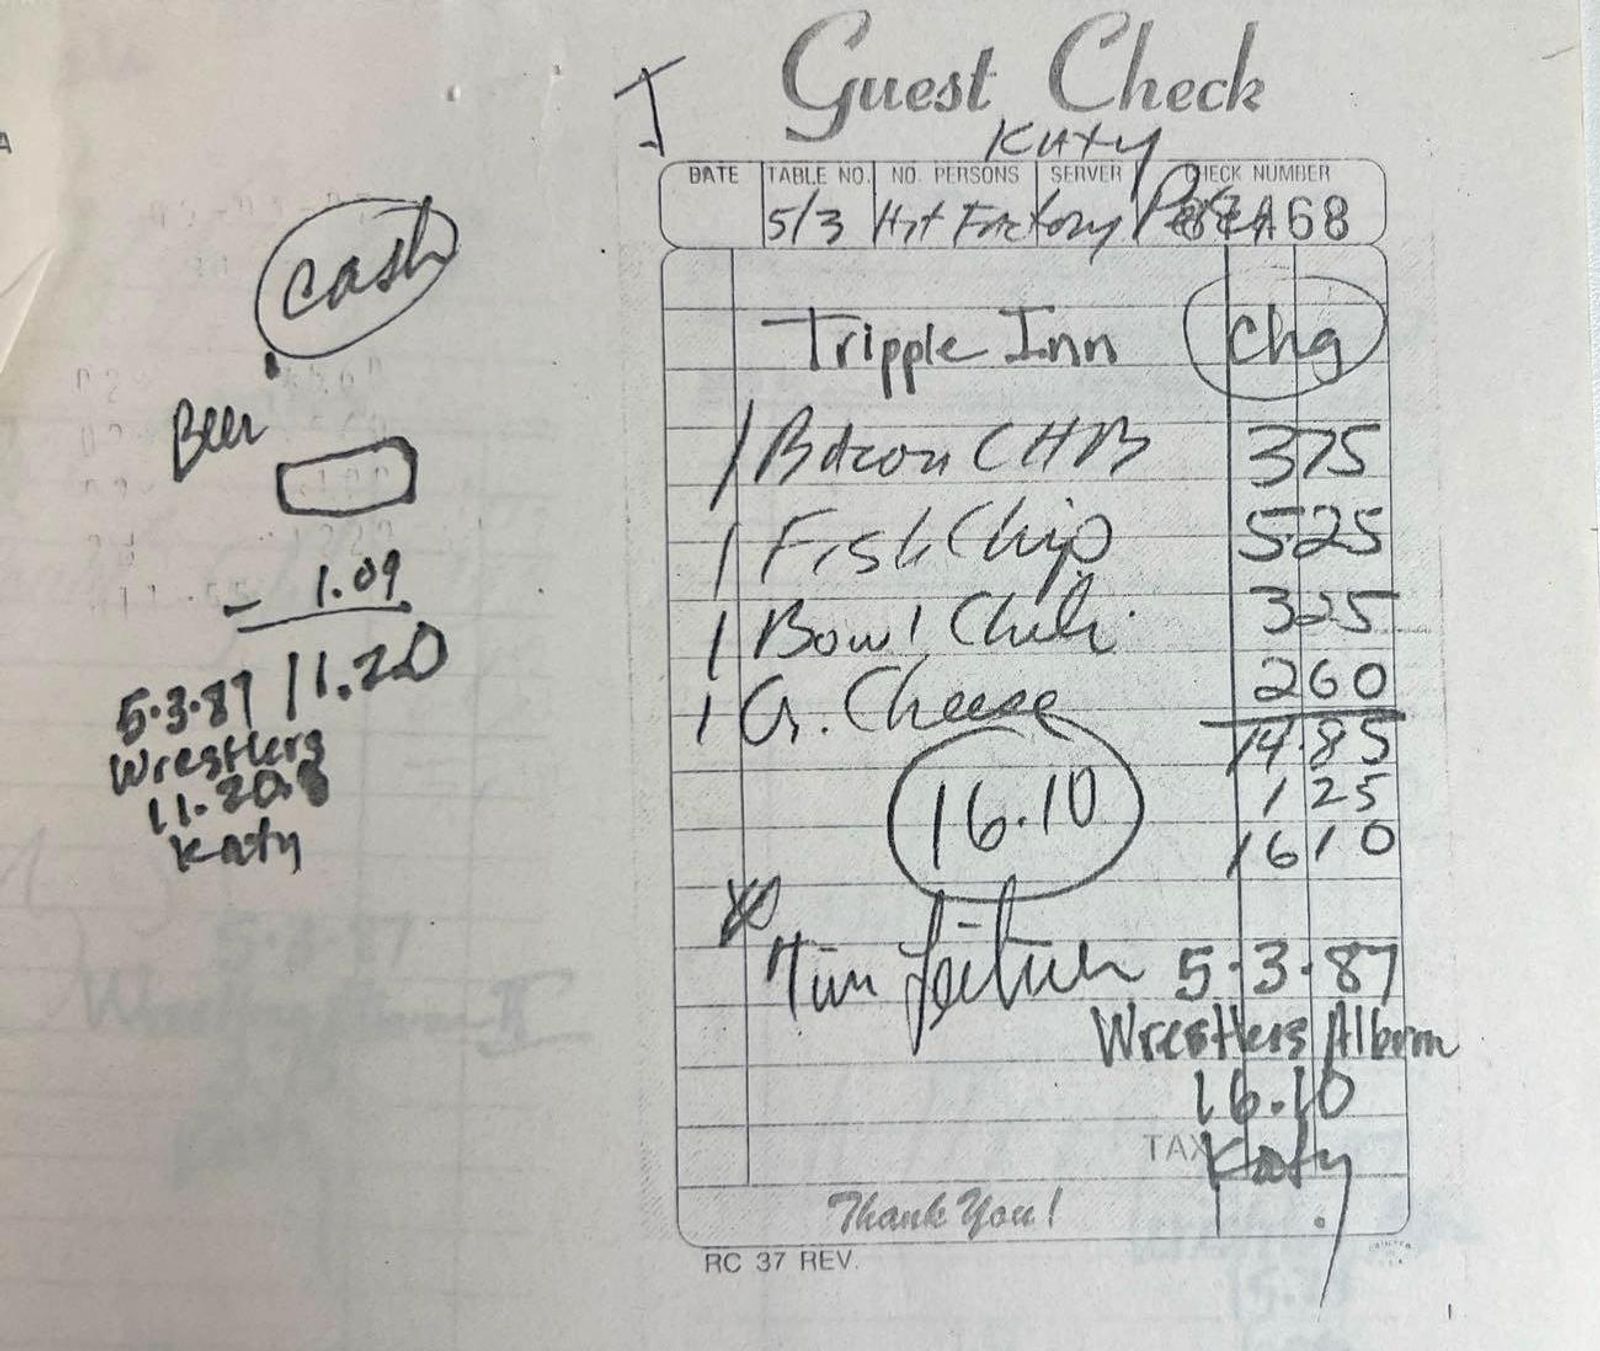 cash
Beer
- 1.09
11.20
5.3.87
Wrestlers
11.20
Katy
I
Guest Check
Katy
DATE TABLE NO. NO. PERSONS SERVER CHECK NUMBER
5/3 Hit Factory 68
Tripple Inn chg
1 Bacon CHB 375
1 Fish Chip 525
1 Bowl Chili 325
1 Gr. Cheese 260
14.85
1 25
16.10 16 10
Tim 5.3.87
Wrestlers Album
16.10
TAX Katy
Thank You!
RC 37 REV.